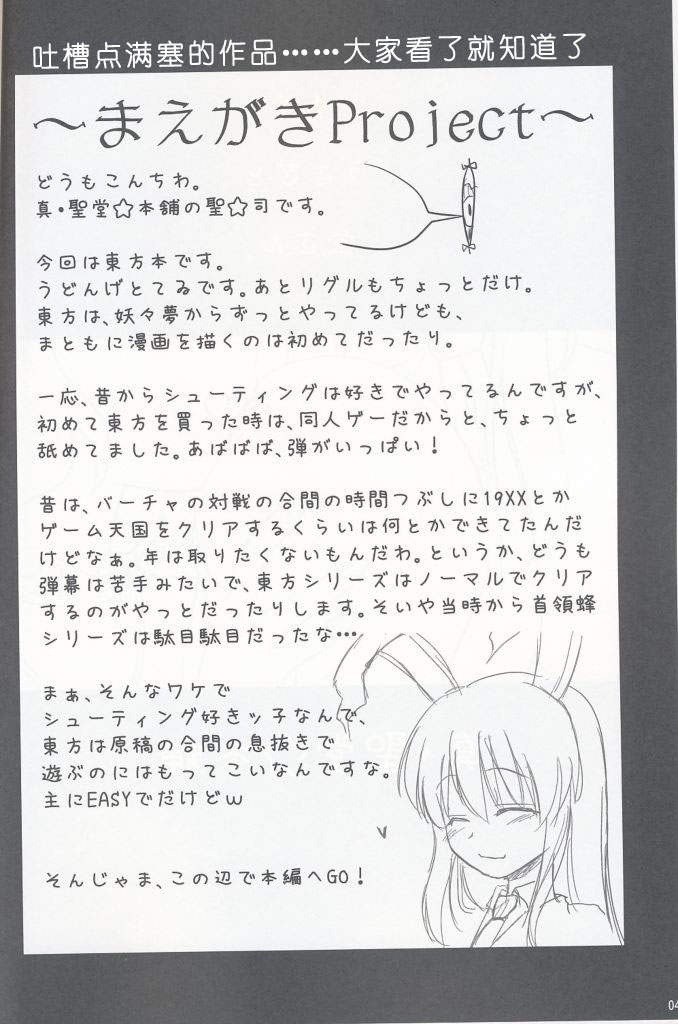 吐槽点满塞的作品……大家看了就知道了
～まえがきProject～
どうもこんちわ。
真・聖堂☆本舗の聖☆司です。
今回は東方本です。
うどんげとてゐです。あとリグルもちょっとだけ。
東方は、妖々夢からずっとやってるけども、
まともに漫画を描くのは初めてだったり。
一応、昔からシューティングは好きでやってるんですが、
初めて東方を買った時は、同人ゲーだからと、ちょっと
舐めてました。あばばば、弾がいっぱい！
昔は、バーチャの対戦の合間の時間つぶしに19XXとか
ゲーム天国をクリアするくらいは何とかできてたんだ
けどなぁ。年は取りたくないもんだわ。というか、どうも
弾幕は苦手みたいで、東方シリーズはノーマルでクリア
するのがやっとだったりします。そいや当時から首領蜂
シリーズは駄目駄目だったな…
まぁ、そんなワケで
シューティング好きッ子なんで、
東方は原稿の合間の息抜きで
遊ぶのにはもってこいなんですな。
主にEASYでだけどｗ
そんじゃま、この辺で本編へGO！
04